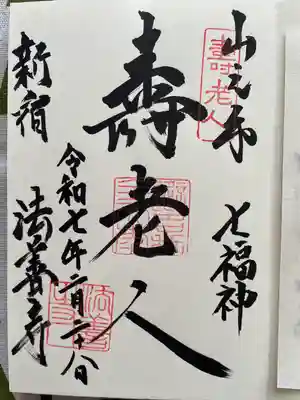 山之手
七福神
壽老人
壽老人
令和七年二月二十八日
新宿
法善寺